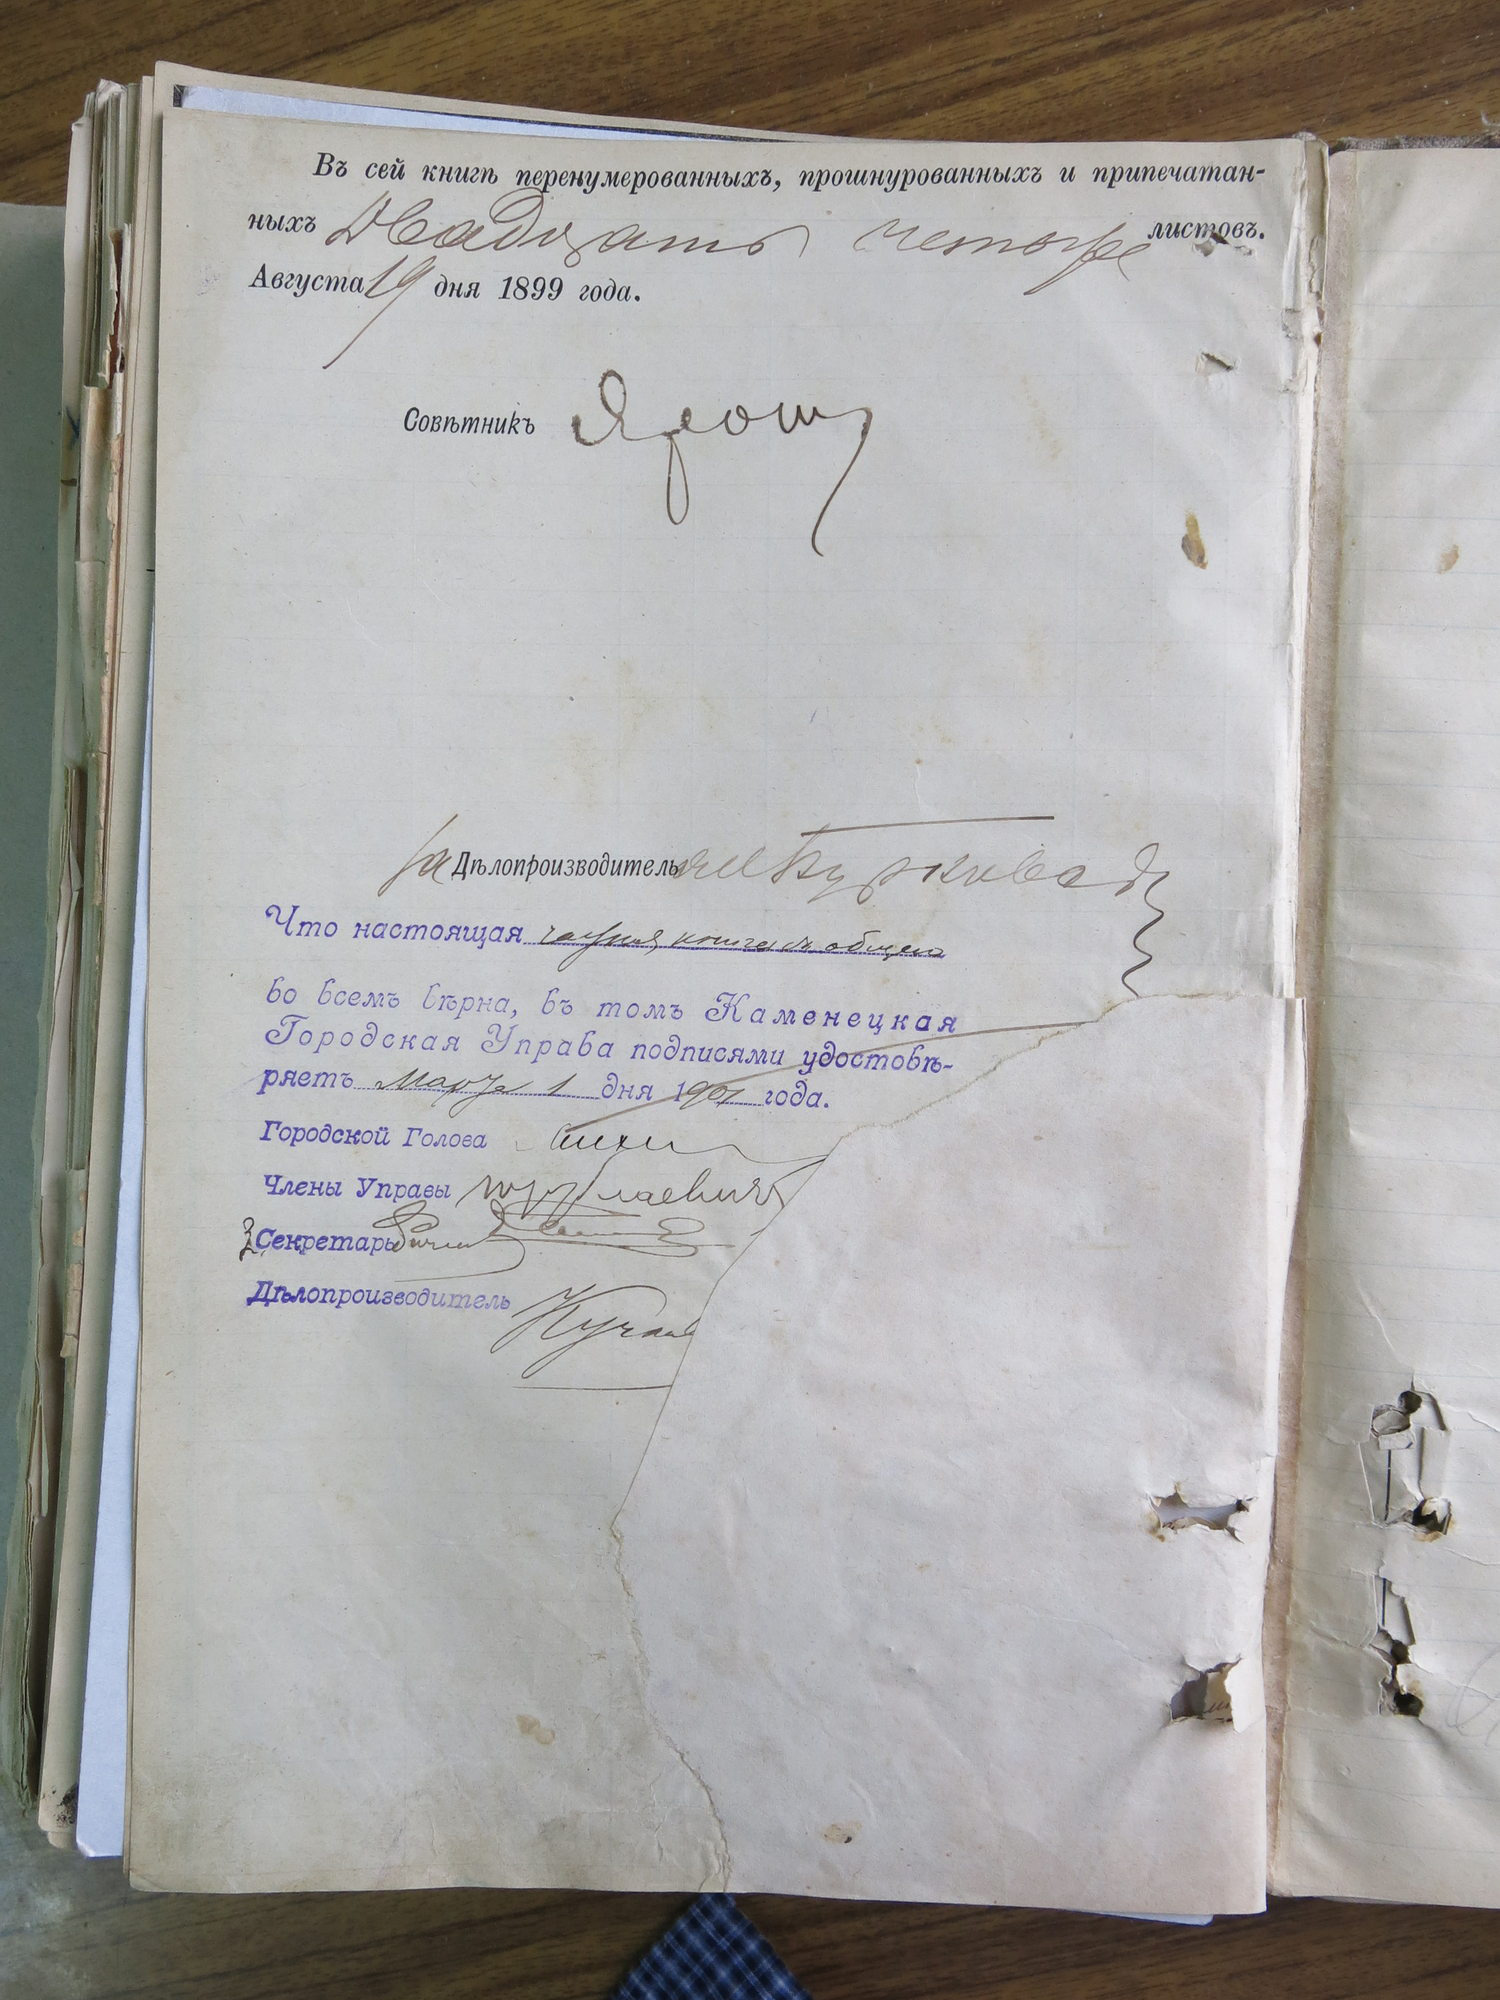 Въ сей книгѣ перенумерованныхъ, прошнурованныхъ и припечатан-
ныхъ Двадцать четыре листовъ.
Августа 19 дня 1899 года.
Совѣтникъ Ярош
За Дѣлопроизводитель
Что настоящая книга
во всемъ вѣрна, въ томъ Каменецкая
Городская Управа подписями удостовѣ-
ряетъ Марта 1 дня 1901 года.
Городской Голова
Члены Управы
Секретарь
Дѣлопроизводитель